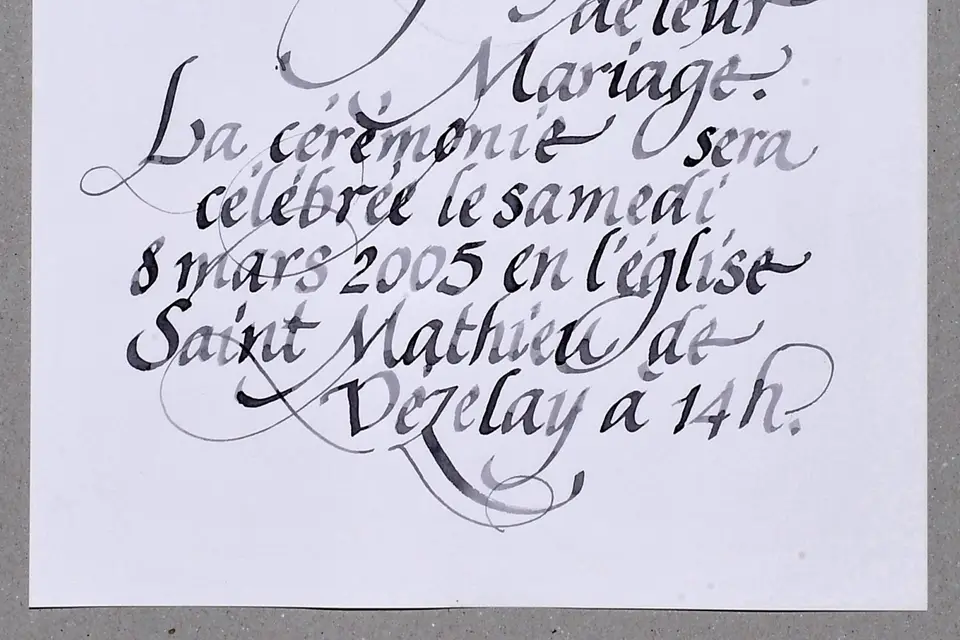 de leur
Mariage.
La cérémonie sera
célébrée le samedi
8 mars 2005 en l'église
Saint Mathieu de
Vézelay à 14h.